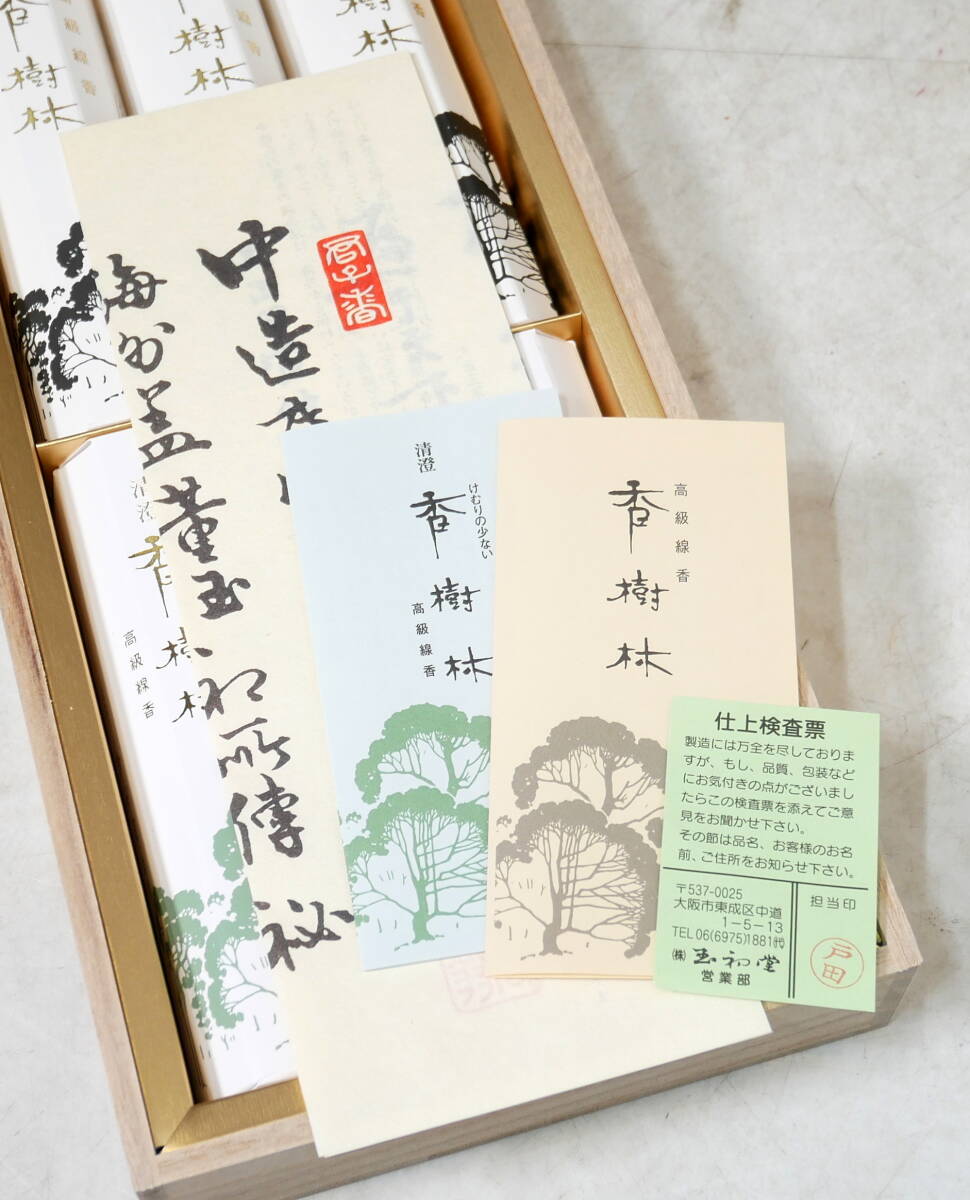 樹
林
高級線香
樹
林
樹
林
中
造
海
外
蓋
董
玉
和
所
傳
祕
清澄
香樹
高級線香
清澄
香樹林
けむりの少ない
高級線香
高級線香
香樹林
仕上検査票
製造には万全を尽しておりま
すが、もし、品質、包装など
にお気付きの点がございまし
たらこの検査票を添えてご意
見をお聞かせ下さい。
その節は品名、お客様のお名
前、ご住所をお知らせ下さい。
〒537-0025
大阪市東成区中道
1-5-13
TEL 06(6975)1881㈹
㈱玉初堂
営業部
担当印
戸田